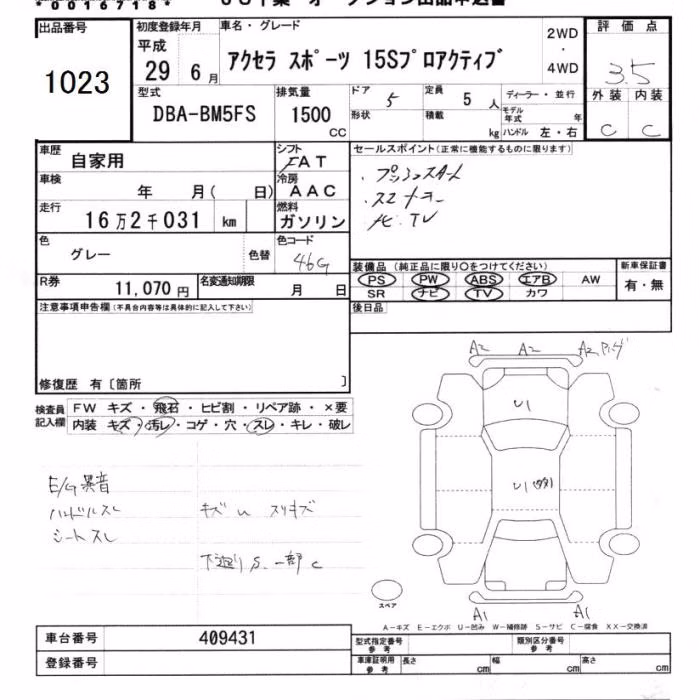 *00167187*
出品番号 初度登録年月 車名・グレード 2WD・4WD 評価点
1023
平成 29 6月 アクセラ スポーツ 15Sプロアクティブ
3.5
型式 DBA-BM5FS
排気量 1500 CC
ドア 5 定員 5人 ディーラー・並行
形状 積載 kg モデル年式 年
ハンドル 左・右
外装 内装
C C
車歴 自家用
シフト FAT
セールスポイント(正常に機能するものに限ります)
・プッシュスタート
・スマートキー
ナビ・TV
車検 年 月( 日)
冷房 AAC
走行 16万2千031 km
燃料 ガソリン
色 グレー 色替
色コード 46G
装備品(純正品に限り○をつけてください) 新車保証書
PS PW ABS エアB AW 有・無
SR ナビ TV カワ
R券 11,070円 名変通知期限 月 日
注意事項申告欄(不具合内容等は具体的に記入して下さい)
後日品
修復歴 有〔箇所 〕
検査員記入欄
FW キズ・飛石・ヒビ割・リペア跡・×要
内装 キズ・汚レ・コゲ・穴・スレ・キレ・破レ
E/G異音
ハンドルスレ
シートスレ
キズ u スリキズ
下廻りS、一部C
A2 A2 A2
U1
U1
A1 A1
スペア
A-キズ E-エクボ U-凹み W-補修跡 S-サビ C-腐食 XX-交換済
車台番号 409431
登録番号
型式指定番号 参考 類別区分番号 参考
車庫証明用 参考 長さ cm 幅 cm 高さ cm